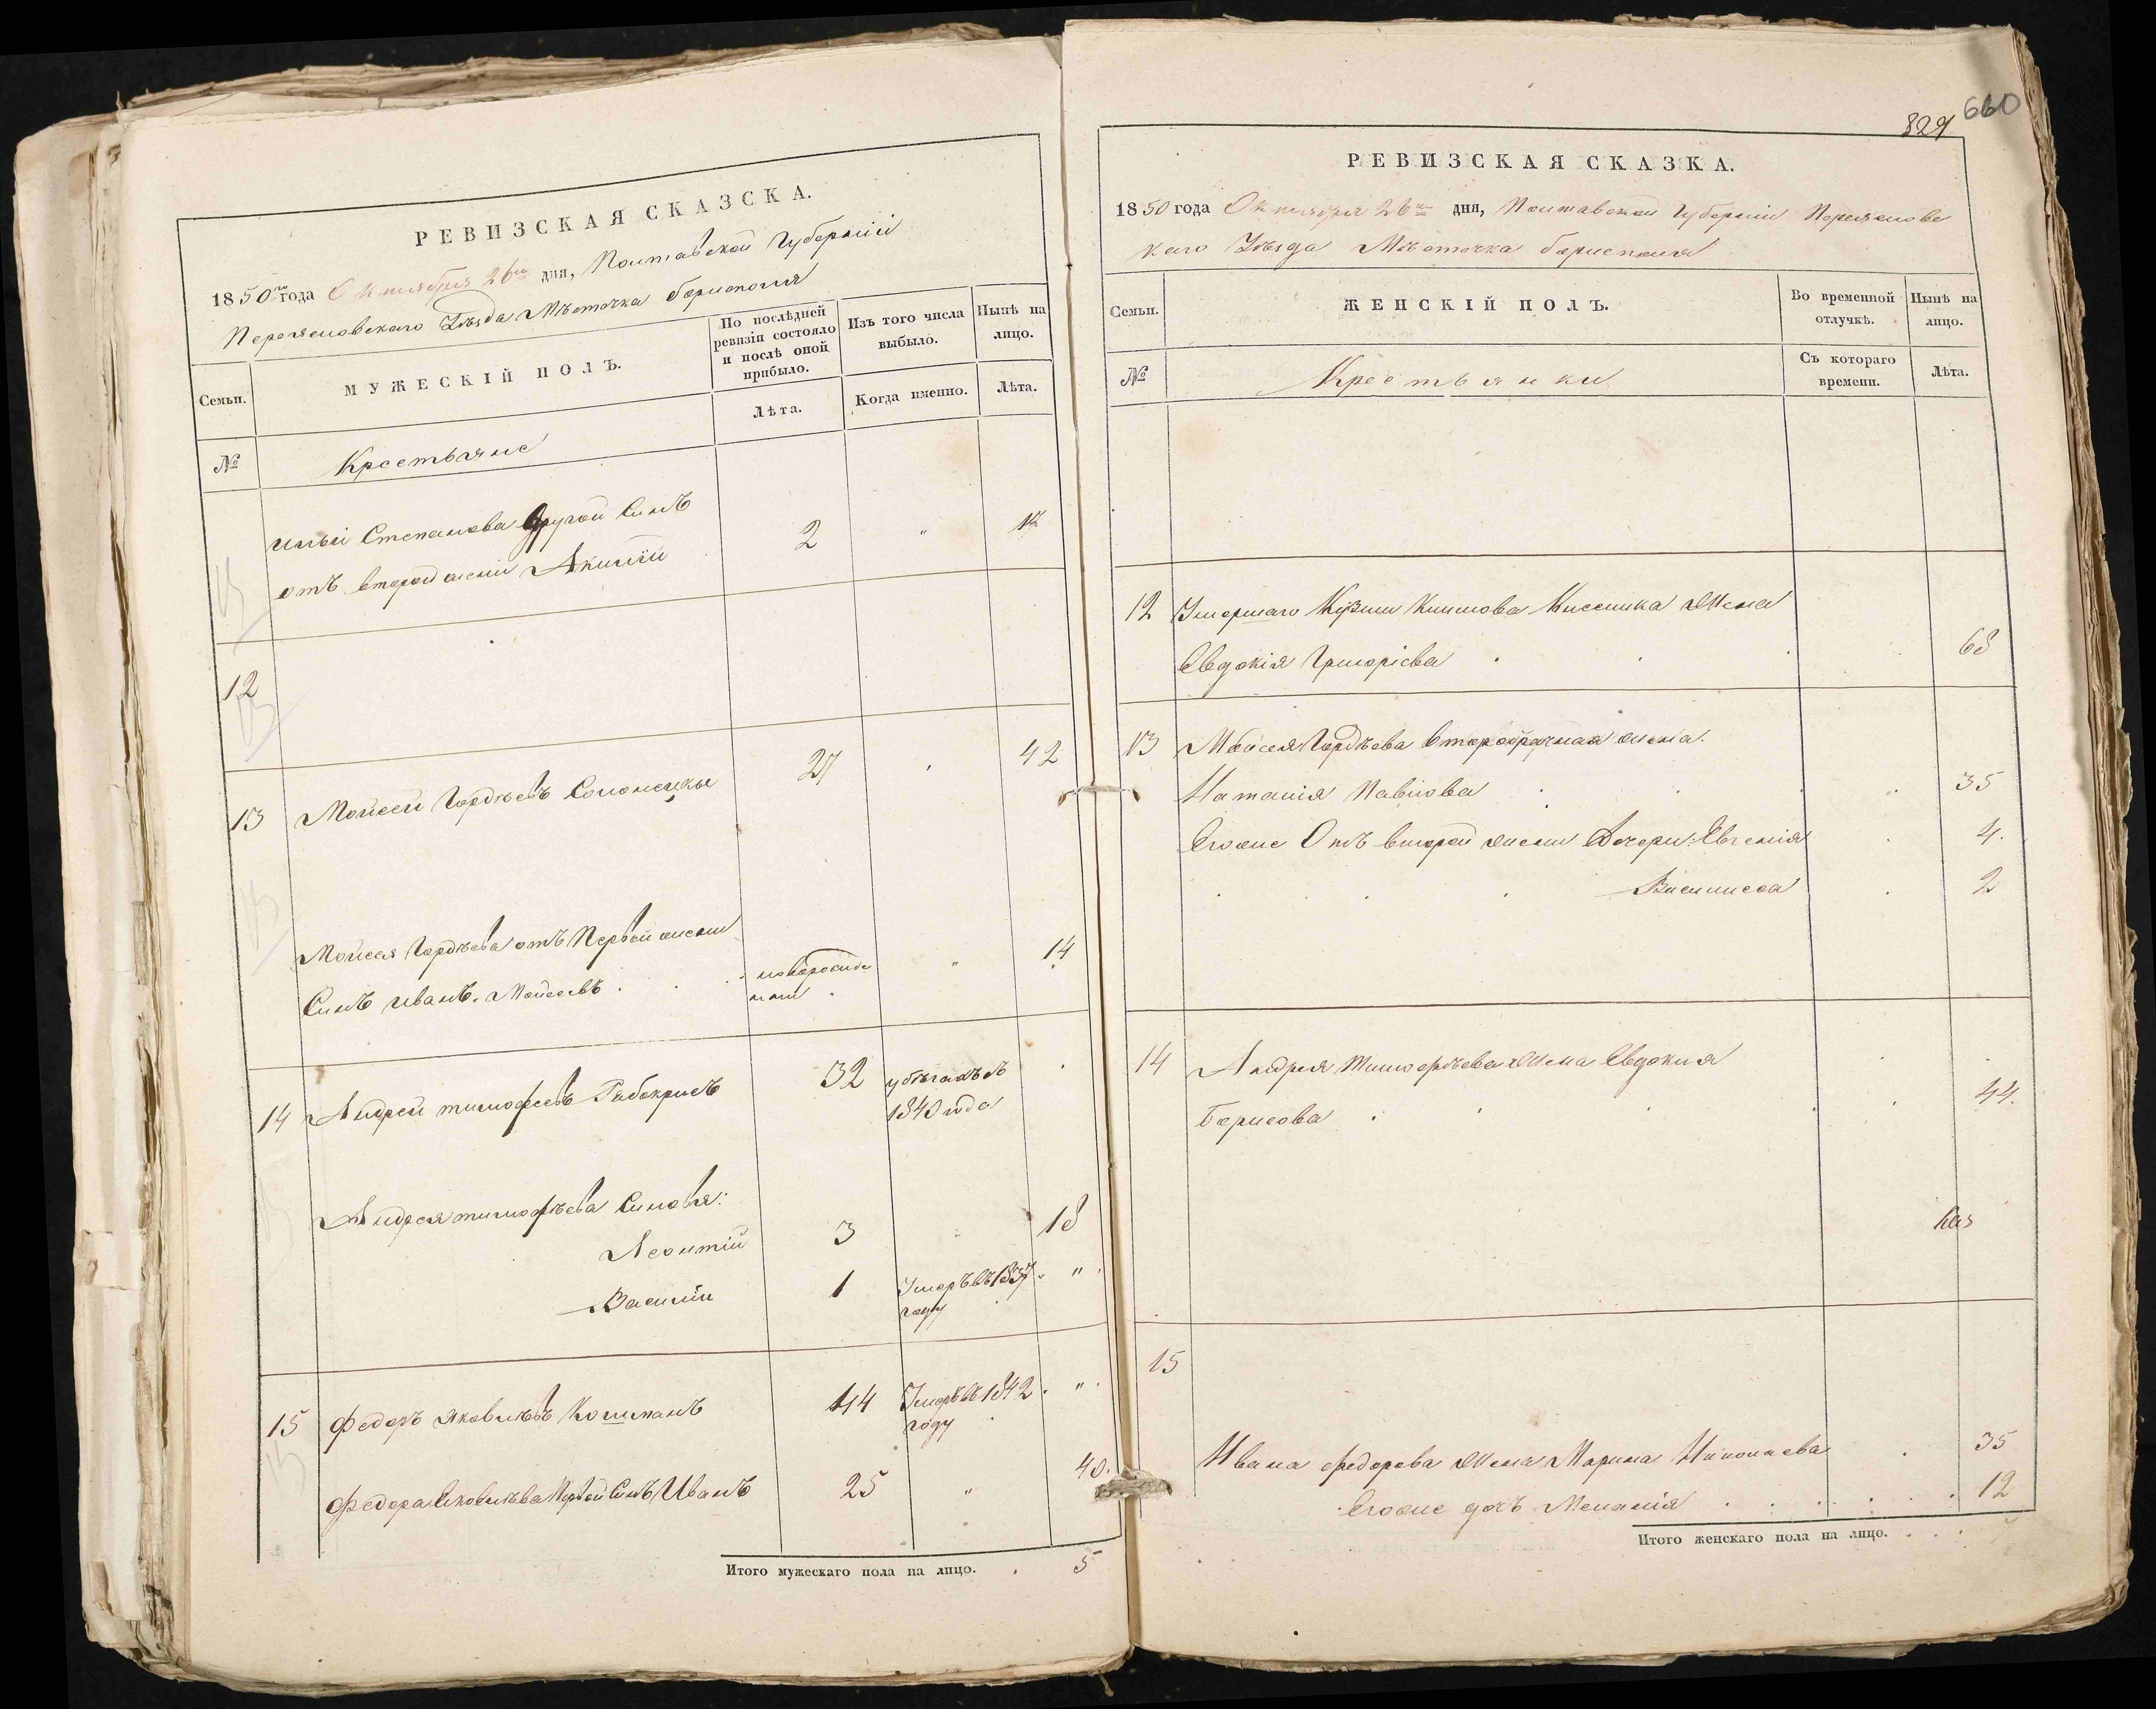 РЕВИЗСКАЯ СКАЗСКА.
1850го года Октября 26го дня, Полтавской Губерніи
Переяславскаго Уѣзда Мѣстечка Борисполя
Семьи.
МУЖЕСКІЙ ПОЛЪ.
По послѣдней ревизіи состояло и послѣ оной прибыло.
Изъ того числа выбыло.
Нынѣ на лицо.
№
Крестьяне
Лѣта.
Когда именно.
Лѣта.
Ильи Степанова другой Синъ
отъ второй жени Акилій 2 " 17
12
13 Мойсей Гордѣевъ 27 42
Мойсея Гордѣева отъ Первой жени
Синъ Иванъ Мойсеевъ . . . новорожде " 14
ний
14 Андрей тимофеевъ 32
1840 года
Андрея тимофѣева Синовья:
Леонтій 3 " 18
Василій 1 Умеръ въ 1837 "
году
15 Федоръ Яковлевъ 44 Умеръ въ 1842 "
году
Федора Яковлева Первой Синъ Иванъ 25 " 40.
Итого мужескаго пола на лицо. . 5
829 660
РЕВИЗСКАЯ СКАЗКА.
1850 года Октября 26го дня, Полтавской Губерніи Переяславс
каго Уѣзда Мѣстечка Борисполя
Семьи.
ЖЕНСКІЙ ПОЛЪ.
Во временной отлучкѣ.
Нынѣ на лицо.
№
Крестьянки
Съ котораго времени.
Лѣта.
12 Умершаго Кузми Климова Жена
Евдокія Григоріева . . . 68
13 Мойсея Гордѣева второбрачная жена
Наталія Павлова . . . 35
Егоже Отъ второй жени Дочери: Евгенія . 4.
Василиса . 2
14 Андрея Тимофѣева Жена Евдокия
Борисова . . . 44.
15
Ивана Федорова Жена Марина Николаева . 35
Егоже дочь Меланія . . . . . . 12
Итого женскаго пола на лицо. . . . 7